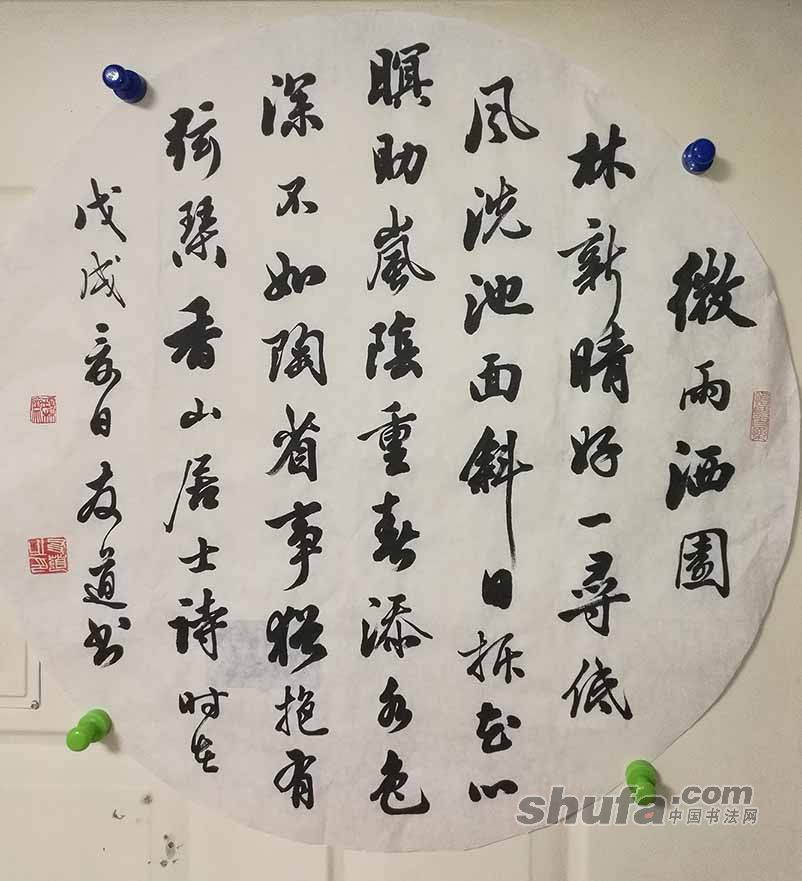 微雨洒園
林新晴好一尋低
風洗池面斜日拆花心
暝助嵐陰重春添水色
深不如陶省事猶抱有
弦琴香山居士诗时在
戊戌夏日友道书
shufa.com
中国书法网